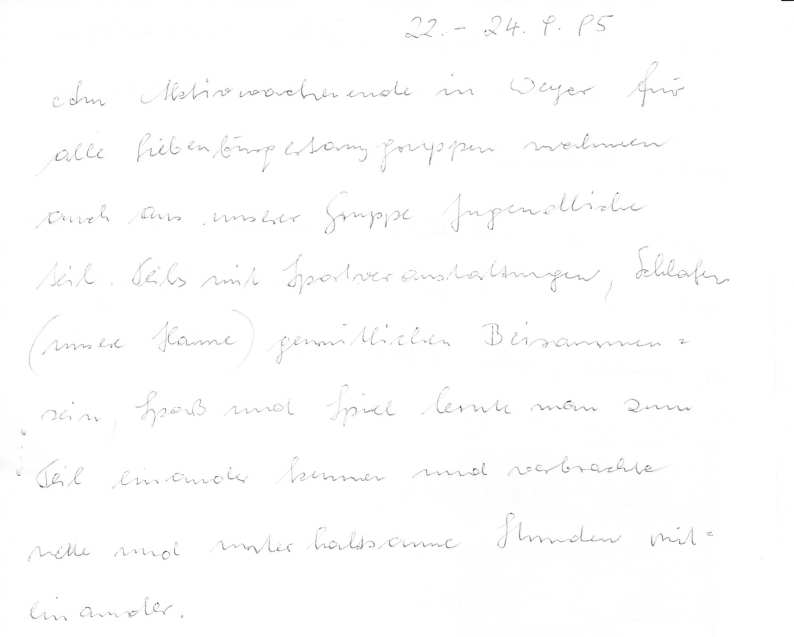 22. - 24. 9. 85
Am Aktivwochenende in Weyer für
alle Siebenbürgertanzgruppen nahmen
auch aus unserer Gruppe Jugendliche
teil. Teils mit Sportveranstaltungen, Schlafen
(unsere Hanne) gemütlichen Beisammen=
sein, Spaß und Spiel lernte man zum
Teil einander kennen und verbrachte
nette und unterhaltsame Stunden mit=
einander.